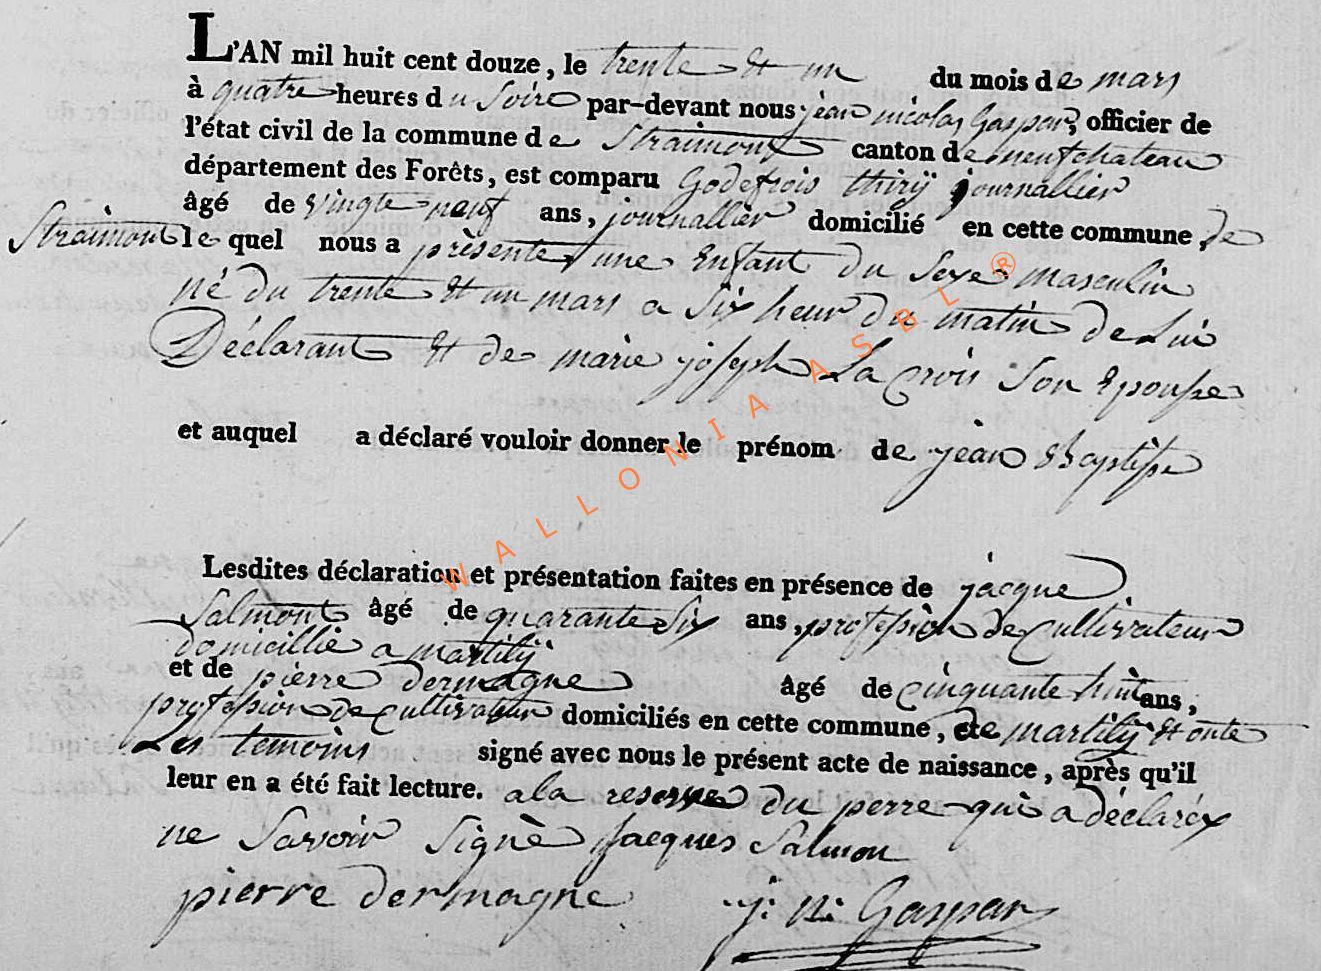 L'AN mil huit cent douze, le trente et un du mois de mars
à quatre heures du Soire par-devant nous jean nicolas Gaspar, officier de
l'état civil de la commune de Straimont canton de neufchateau
département des Forêts, est comparu Godefrois thirÿ journallier
âgé de vingte neuf ans, journallier domicilié en cette commune, de
Straimont le quel nous a présente une Enfant du Sexe masculin
né du trente et un mars a Six heur du matin de Lui
Déclarant et de marie joseph La Crois Son Epousse
et auquel a déclaré vouloir donner le prénom de jean Baptisse
Lesdites déclaration et présentation faites en présence de jacque
Salmont âgé de quarante Six ans, profession de Cultivateur
domicillié a martilÿ
et de pierre dermagne âgé de cinquante huit ans,
profession de Cultivateur domiciliés en cette commune, de martilÿ et onte
Les temoins signé avec nous le présent acte de naissance, après qu'il
leur en a été fait lecture. a la reserve du perre qui a déclaré
ne Savoir Signè Jacques Salmon
pierre dermagne j: n: Gaspar
WALLONIA ASBL ®